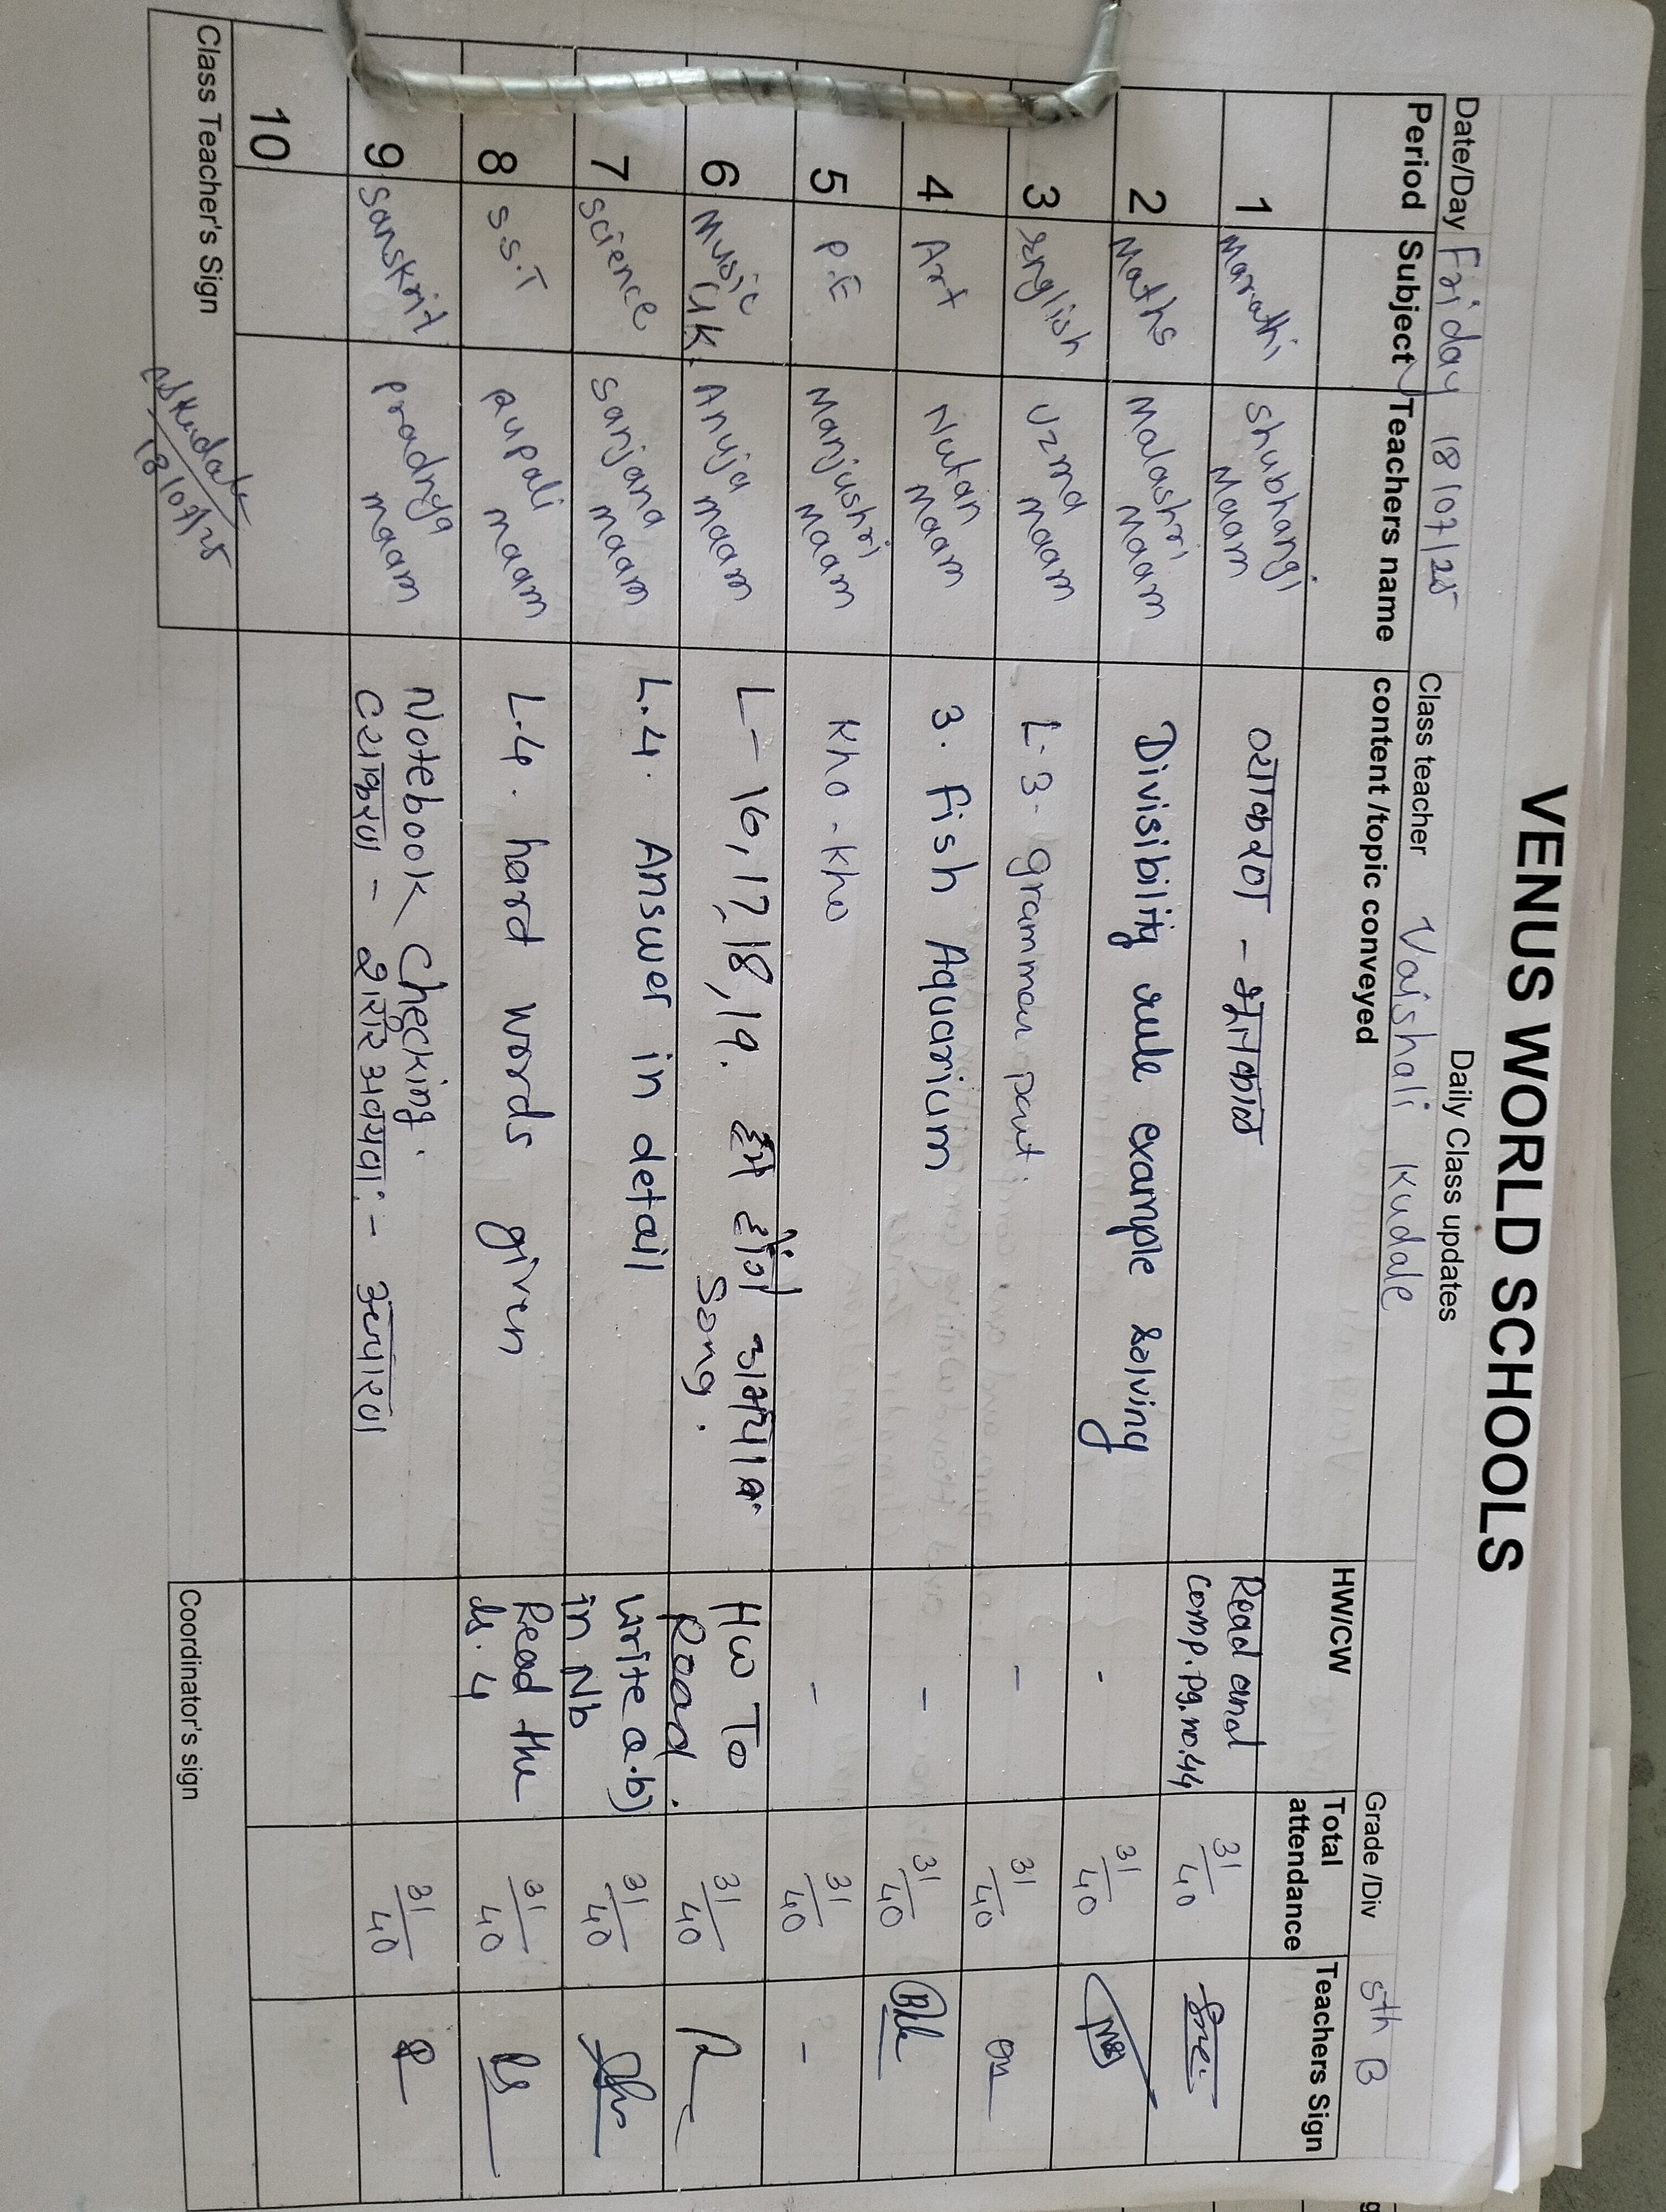 VENUS WORLD SCHOOLS
Daily Class updates
Date/Day Friday 18/07/25 Class teacher Vaishali Kudale Grade /Div 5th B
Period Subject Teachers name content /topic conveyed HW/CW Total attendance Teachers Sign
1 Marathi Shubhangi Maam व्याकरण - भूतकाळ Read and comp. pg. no. 44 31/40
2 Maths Malashri Maam Divisibility rule example solving - 31/40
3 English Uzma maam L-3- grammar part - 31/40
4 Art Nutan Maam 3. Fish Aquarium - 31/40
5 P.E Manjushri Maam Kho-Kho - 31/40 -
6 Music GK. Anuja maam L-16,17,18,19. हम होंगे कामयाब song. HW To Read. 31/40
7 Science Sanjana maam L.4. Answer in detail Write a.b) in Nb 31/40
8 S.S.T Rupali maam L.4. hard words given Read the ls. 4 31/40
9 Sanskrit Pradnya maam Notebook Checking. 31/40
व्याकरण - शरीर अवयवाः - उच्चारण
10
Class Teacher's Sign 18/07/25 Coordinator's sign